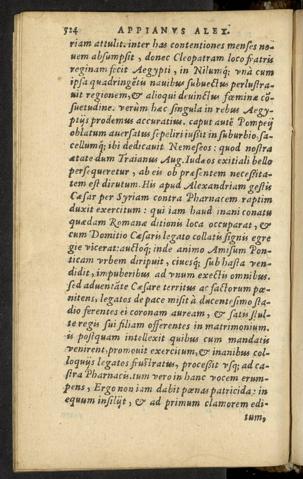 524 APPIANVS ALEX.
riam attulit. inter has contentiones menses no-
uem absumpsit, donec Cleopatram loco fratris
reginam fecit Aegypti, in Nilumq́; vnà cum
ipsa quadringētis nauibus subuectus perlustra-
uit regionem, & alioqui deuinctus fœminæ cō-
suetudine. verùm hæc singula in rebus Aegy-
ptijs prodemus accuratius. caput autē Pompeij
oblatum auersatus sepeliri iußit in suburbio. sa-
cellumq́; ibi dedicauit Nemeseos: quod nostra
ætate dum Traianus Aug. Iudæos exitiali bello
persequeretur, ab eis ob præsentem necessita-
tem est dirutum. His apud Alexandriam gestis
Cæsar per Syriam contra Pharnacem raptim
duxit exercitum: qui iam haud inani conatu
quædam Romanæ ditionis loca occuparat, &
cum Domitio Cæsaris legato collatis signis egre
gie vicerat: auctoq́; inde animo Amisum Pon-
ticam vrbem diripuit, ciuesq́; sub hasta ven-
didit, impuberibus ad vnum exectis omnibus.
sed aduentāte Cæsare territus ac factorum pœ-
nitens, legatos de pace misit à ducentesimo sta-
dio ferentes ei coronam auream, & satis stul-
te regis sui filiam offerentes in matrimonium.
is postquam intellexit quibus cum mandatis
venirent, promouit exercitum, & inanibus col-
loquijs legatos frustratus, processit vsq́; ad ca-
stra Pharnacis. tum vero in hanc vocem erum-
pens, Ergo non iam dabit pœnas patricida: in
equum insilijt, & ad primum clamorem edi-
tum,